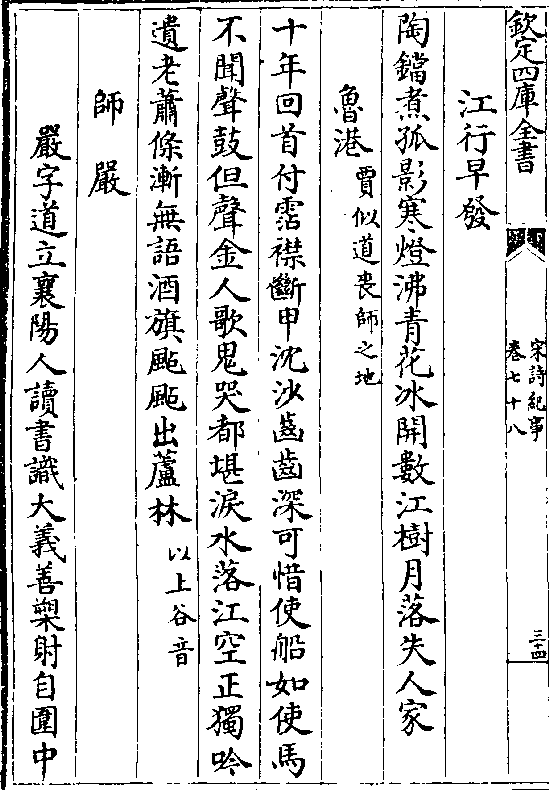 欽定四庫全書
宋詩紀事
卷七十八
三十四
江行早發
陶鐺煮孤影寒燈沸青花冰開數江樹月落失人家
魯港 賈似道喪師之地
十年回首付霑襟斷甲沈沙齒齒深可惜使船如使馬
不聞聲鼓但聲金人歌鬼哭都堪淚水落江空正獨吟
遺老蕭條漸無語酒旗颭颭出蘆林 以上谷音
師嚴
嚴字道立襄陽人讀書識大義善槊射自圍中